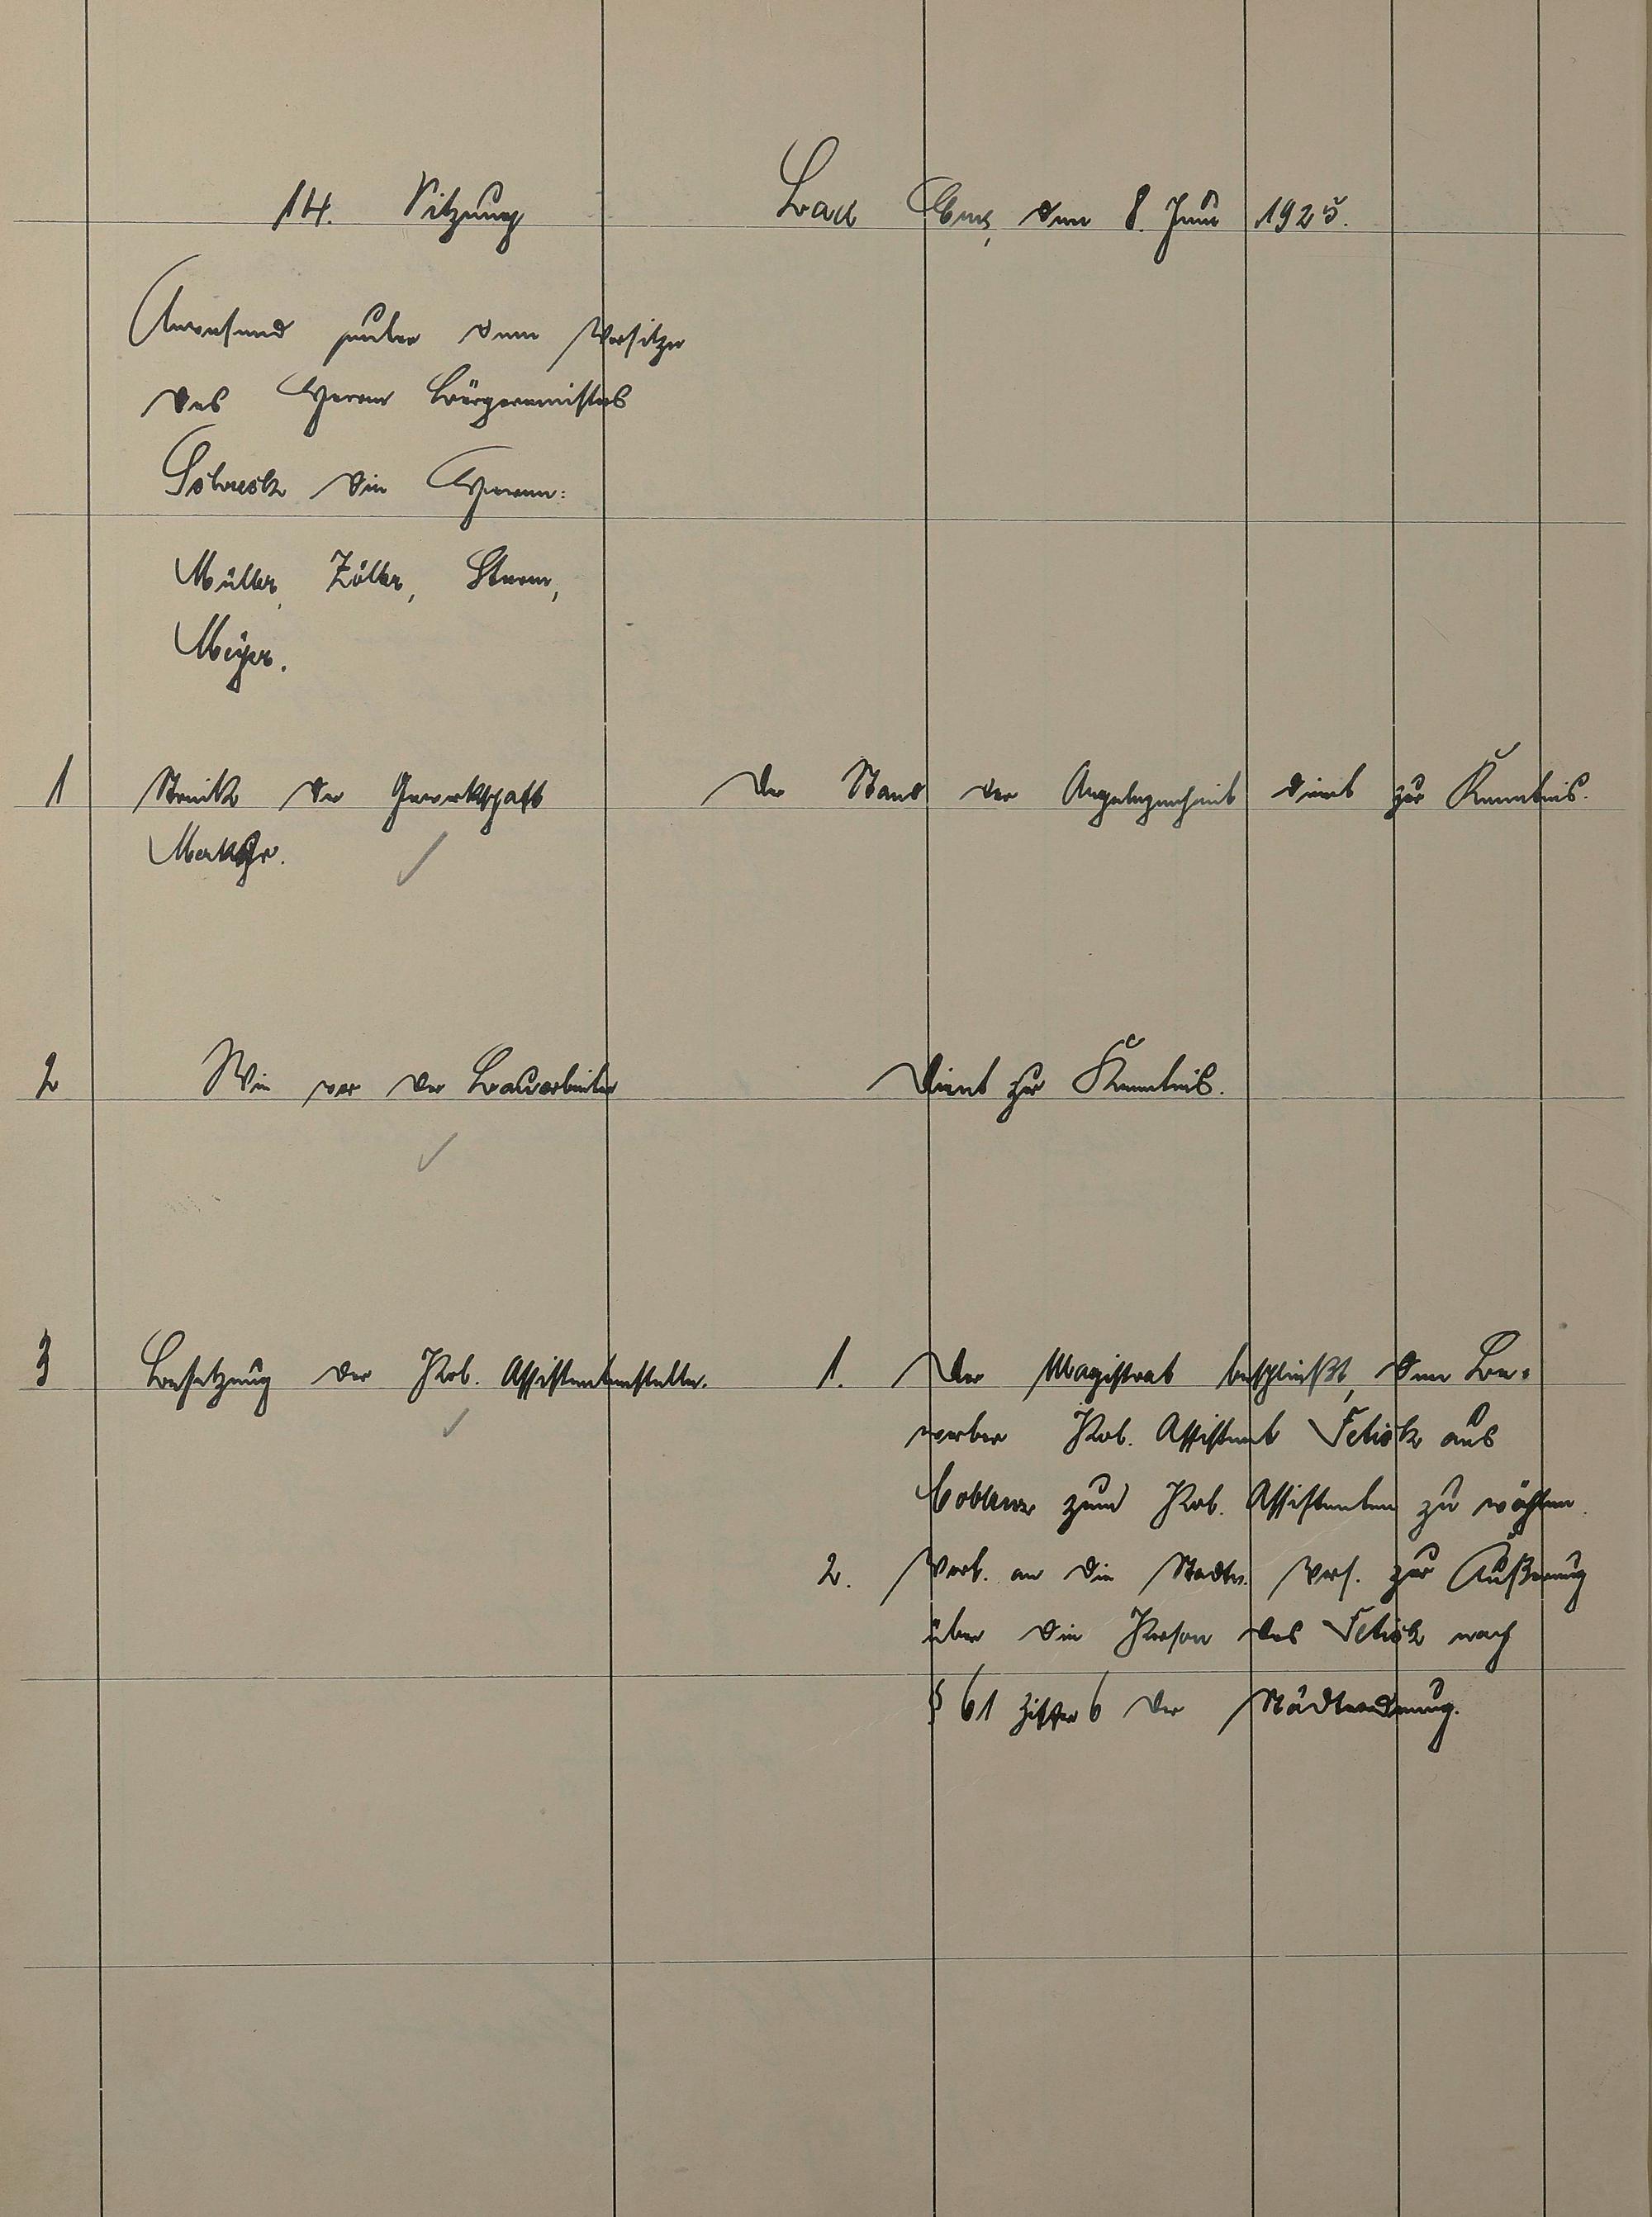 14. Sitzung
Bad Ems, den 8. Juni 1925.
Anwesend unter dem Vorsitze
des Herrn Bürgermeisters
die Herren:
Müller, Zöller, Sturm,
Meyer.
1 Streik der Gewerkschaft
Der Stand der Angelegenheit dient zur Kenntnis.
Merkur.
2 Wie vor der Bauarbeiter
Dient zur Kenntnis.
3 Besetzung der Pol. Assistentenstelle.
1. Der Magistrat beschließt, den Be-
werber Pol. Assistent aus
Coblenz zum Pol. Assistenten zu wählen.
2. Vorl. an die Stadtv. Vers. zur Äußerung
über die Person des nach
§ 61 Ziffer 6 der Städteordnung.